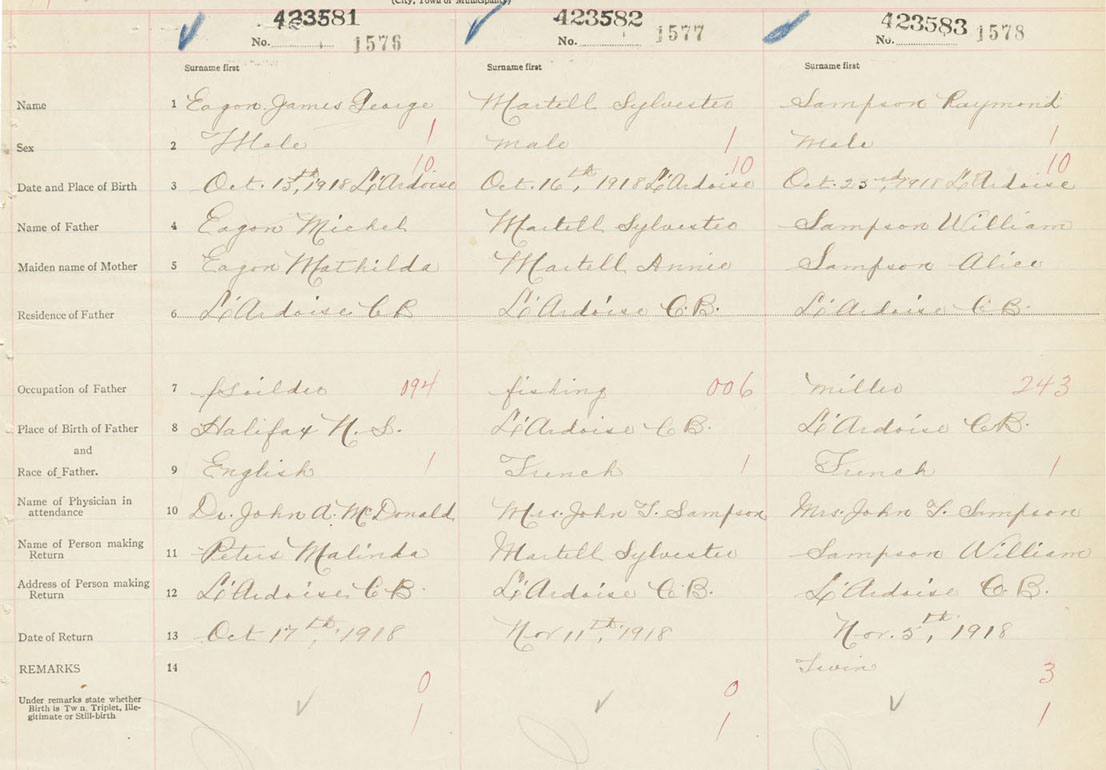 (City, Town or Municipality)
423581 423582 423583
No. 1576 No. 1577 No. 1578
Surname first Surname first Surname first
Name 1 Eagon James George Martell Sylvester Sampson Raymond
Sex 2 Male 1 male 1 Male 1
10 10 10
Date and Place of Birth 3 Oct. 15th, 1918 L'Ardoise Oct. 16th, 1918 L'Ardoise Oct. 23rd, 1918 L'Ardoise
Name of Father 4 Eagon Michel Martell Sylvester Sampson William
Maiden name of Mother 5 Eagon Mathilda Martell Annie Sampson Alice
Residence of Father 6 L'Ardoise C B L'Ardoise C.B. L'Ardoise C B.
Occupation of Father 7 Soilder 094 fishing 006 miller 243
Place of Birth of Father 8 Halifax N. S. L'Ardoise C B. L'Ardoise C B.
and
Race of Father. 9 English 1 French 1 French 1
Name of Physician in
attendance 10 Dr. John A. McDonald Mrs. John T. Sampson Mrs. John T. Sampson
Name of Person making
Return 11 Peters Malinda Martell Sylvester Sampson William
Address of Person making
Return 12 L'Ardoise C B. L'Ardoise C B. L'Ardoise C. B.
Date of Return 13 Oct 17th, 1918 Nov 11th, 1918 Nov. 5th, 1918
REMARKS 14 Twin
0 0 3
Under remarks state whether
Birth is Twn, Triplet, Ille-
gitimate or Still-birth
1 1 1